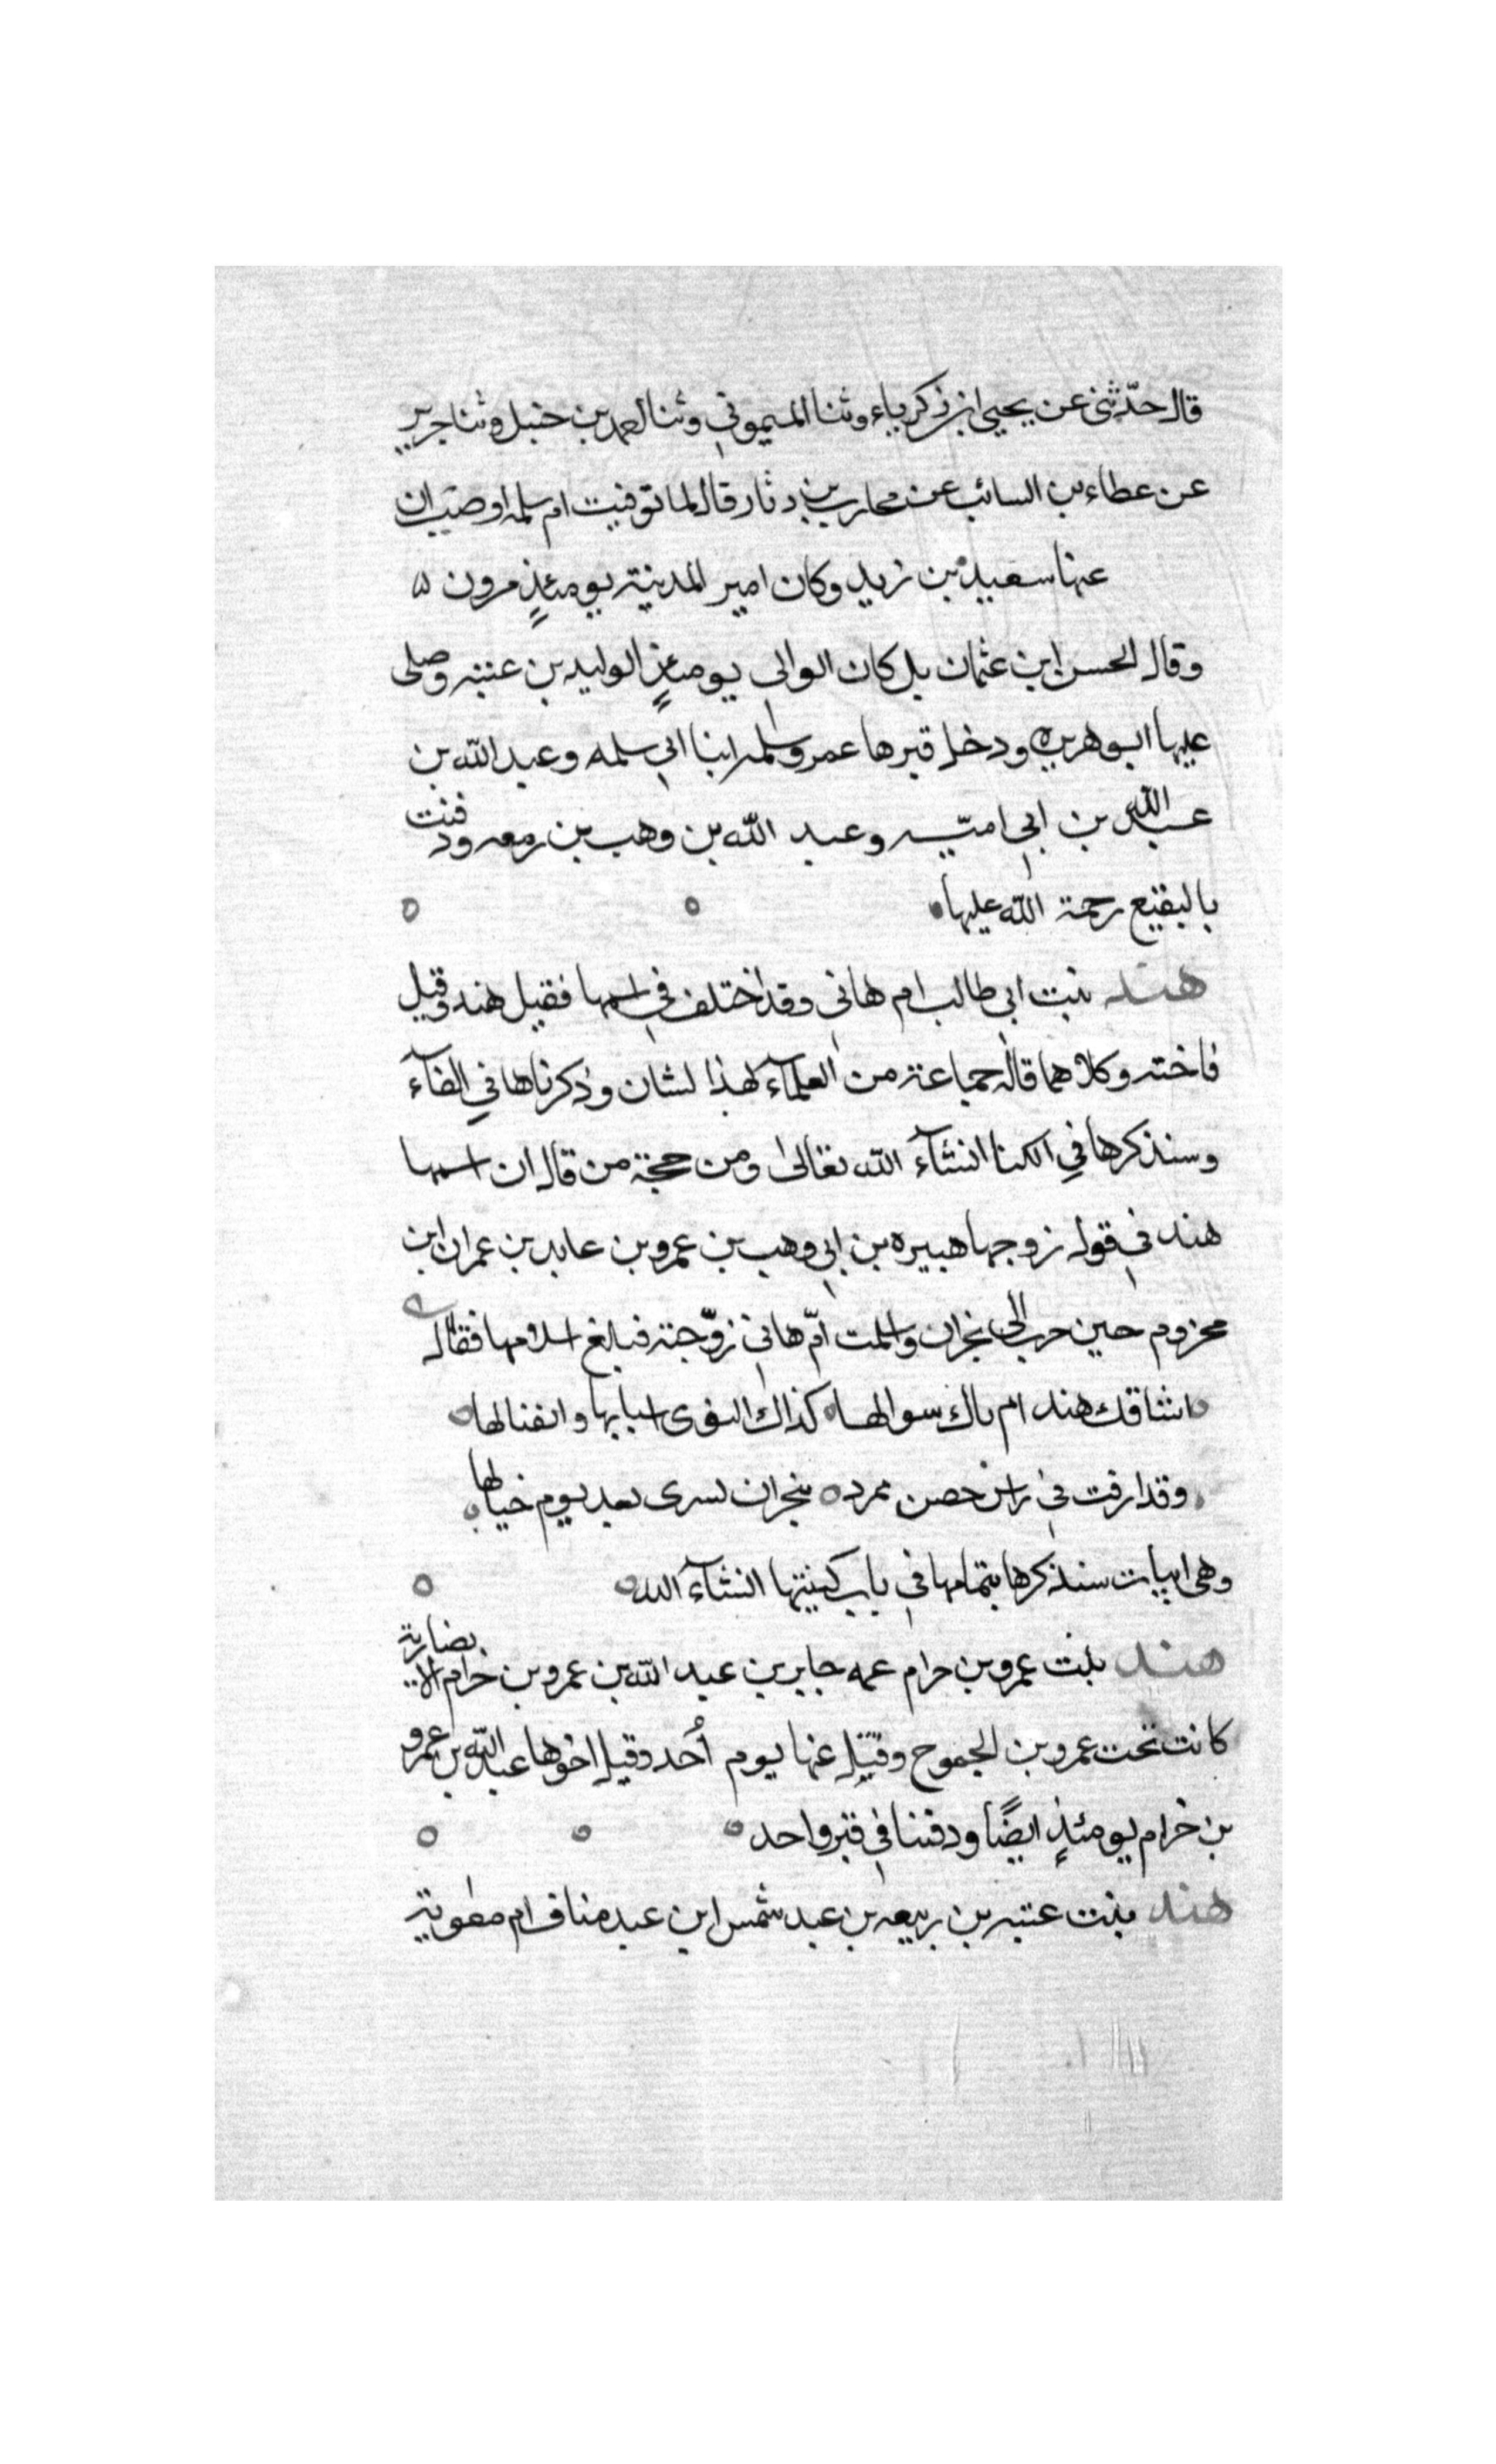 قال حدّثني عن يحيى ابن زكرياء وثنا الميموني وثنا احمد بن حنبل وثنا جرير
عن عطاء بن السائب عن محارب بن دثار قال لما توفيت ام سلمه اوصت ان
عنها سعيد بن زيد وكان امير المدينة يومئذٍ مرون ۵
وقال الحسن ابن عثمان بل كان الوالي يومئذٍ الوليد بن عتبه وصلى
عليها ابو هريره ودخل قبرها عمر وسلمه ابنا ابي سلمه وعبد الله بن
عبد الله بن ابي اميّه وعبد الله بن وهب بن زمعه ودفنت
بالبقيع رحمة الله عليها
هند بنت ابي طالب ام هاني وقد اختلف في اسمها فقيل هند وقيل
فاخته وكلاهما قاله جماعة من العلمآء لهذا لشان وذكرناها في الفآء
وسنذكرها في الكنا انشآء الله تعالى ومن حجة من قال ان اسمها
هند في قوله زوجها هبيره بن ابي وهب بن عمرو بن عايد بن عمران ابن
مخزوم حين هرب الى نجران واسلمت امّ هاني زوّجته فبلغ اسلامها فقال
اشاقك هند ام باك سوالها كذاك النوى اسبابها وانفتالها
وقد ارقت في راس حصن ممرد بنجران يسرى بعد يوم خيالها
وهي ابيات سنذكرها بتمامها في باب كنيتها انشآء الله
هند بنت عمرو بن حرام عمه جابر بن عبد الله بن عمرو بن حرام الانصارية
كانت تحت عمرو بن الجموح وقتل عنها يوم أحد وقتل اخوها عبد الله بن عمرو
بن حرام يومئذٍ ايضًا ودفنا في قبر واحد
هند بنت عتبه بن ربيعه بن عبد شمس ابن عبد مناف ام معوية